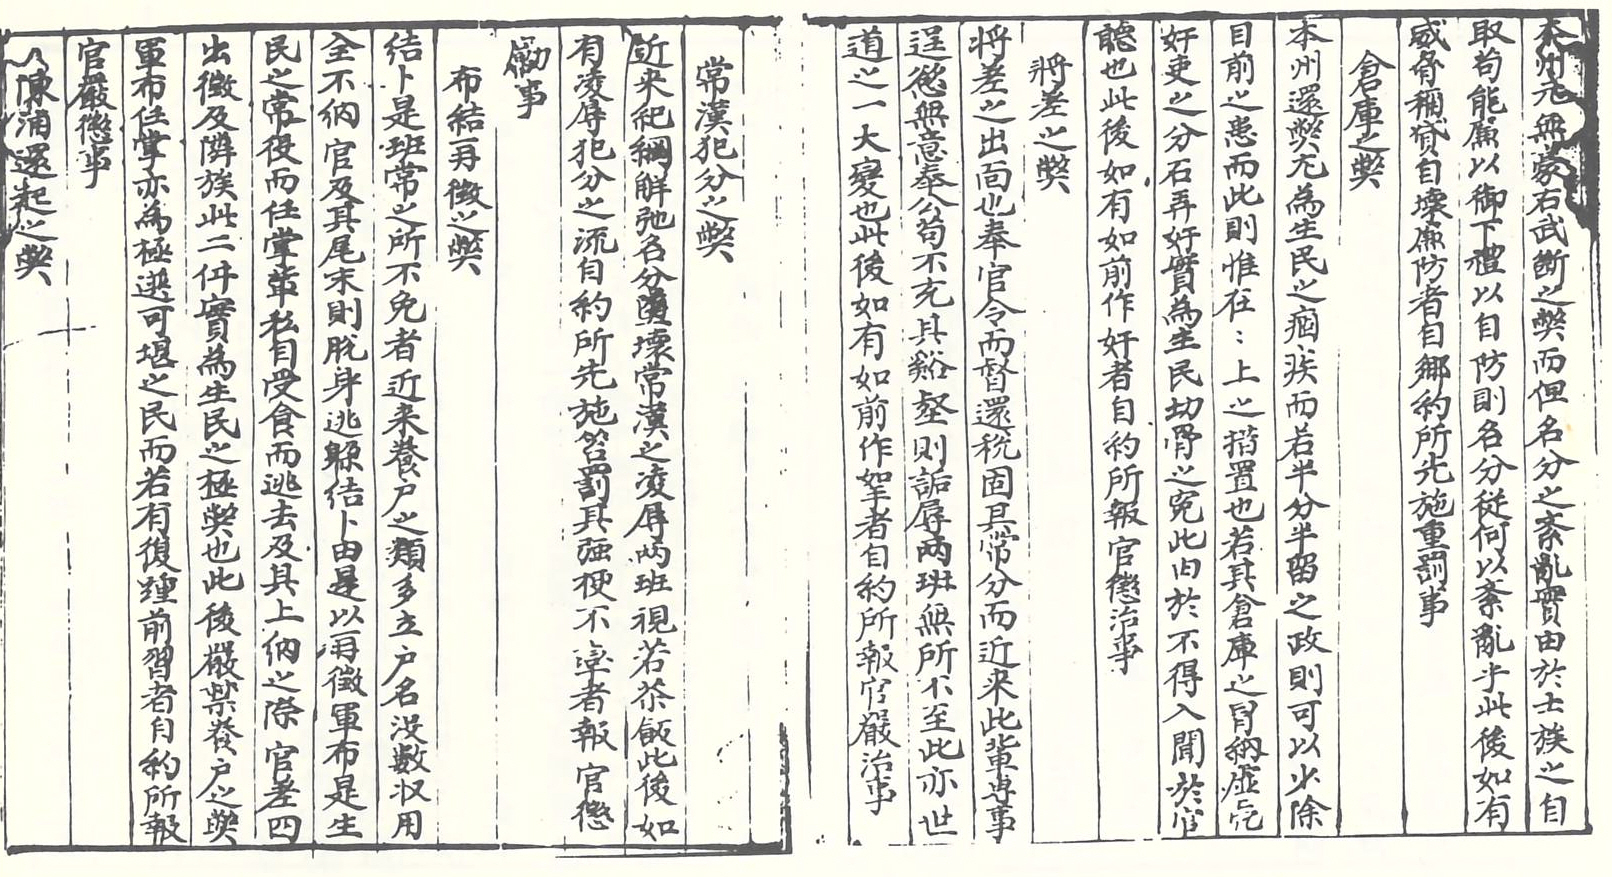 本州元無豪右武斷之弊而但名分之紊亂實由於士族之自
取苟能廉以御下禮以自防則名分從何以紊亂乎此後如有
威脅稱貸自壞廉防者自鄉約所先施重罰事
倉庫之弊
本州還弊尤為生民之痼疾而若半分半留之政則可以少除
目前之患而此則惟在：上之措置也若其倉庫之冐納虛完
奸吏之分石弄奸實為生民切骨之寃此由於不得入聞於官
聽也此後如有如前作奸者自約所報官懲治事
將差之弊
將差之出面也奉官令而督還稅固其常分而近来此輩專事
逞慾無意奉公苟不充其谿壑則詬辱兩班無所不至此亦世
道之一大變也此後如有如前作挐者自約所報官嚴治事
常漢犯分之弊
近来紀綱解弛名分墮壞常漢之凌辱兩班視若茶飯此後如
有凌辱犯分之流自約所先施笞罰其強梗不率者報官懲
勵事
布結再徵之弊
結卜是班常之所不免者近来養戶之類多立戶名没數収用
全不納官及其尾末則脫身逃躱結卜由是以再徵軍布是生
民之常役而任掌輩私自受食而逃去及其上納之際官差四
出徵及隣族此二件實為生民之極弊也此後嚴禁養戶之弊
軍布任掌亦為極選可堪之民而若有復踵前習者自約所報
官嚴懲事
陳浦還起之弊